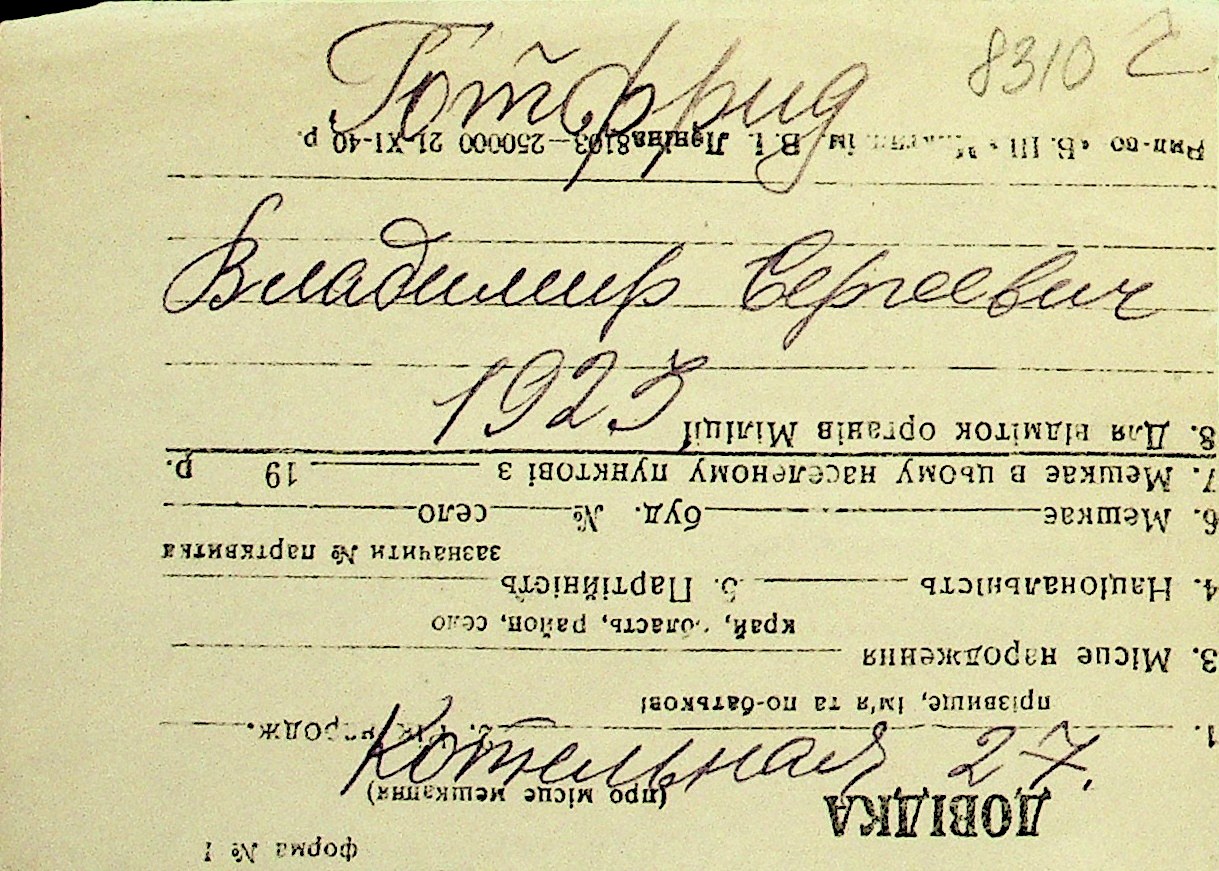 8310
Готфрид
Владимир Сергеевич
1923
Котельная 27.
форма № 1
ДОВІДКА
(про місце мешкання)
1. 2. Рік народж.
прізвище, ім'я та по-батькові
3. Місце народження
край, область, район, село
4. Національність 5. Партійність
зазначити № партквитка
6. Мешкає буд. № село
7. Мешкає в цьому населеному пунктові з 19 р.
8. Для відміток органів Міліції
ім. В. І. Леніна 8103—250000 21-XI-40 р.